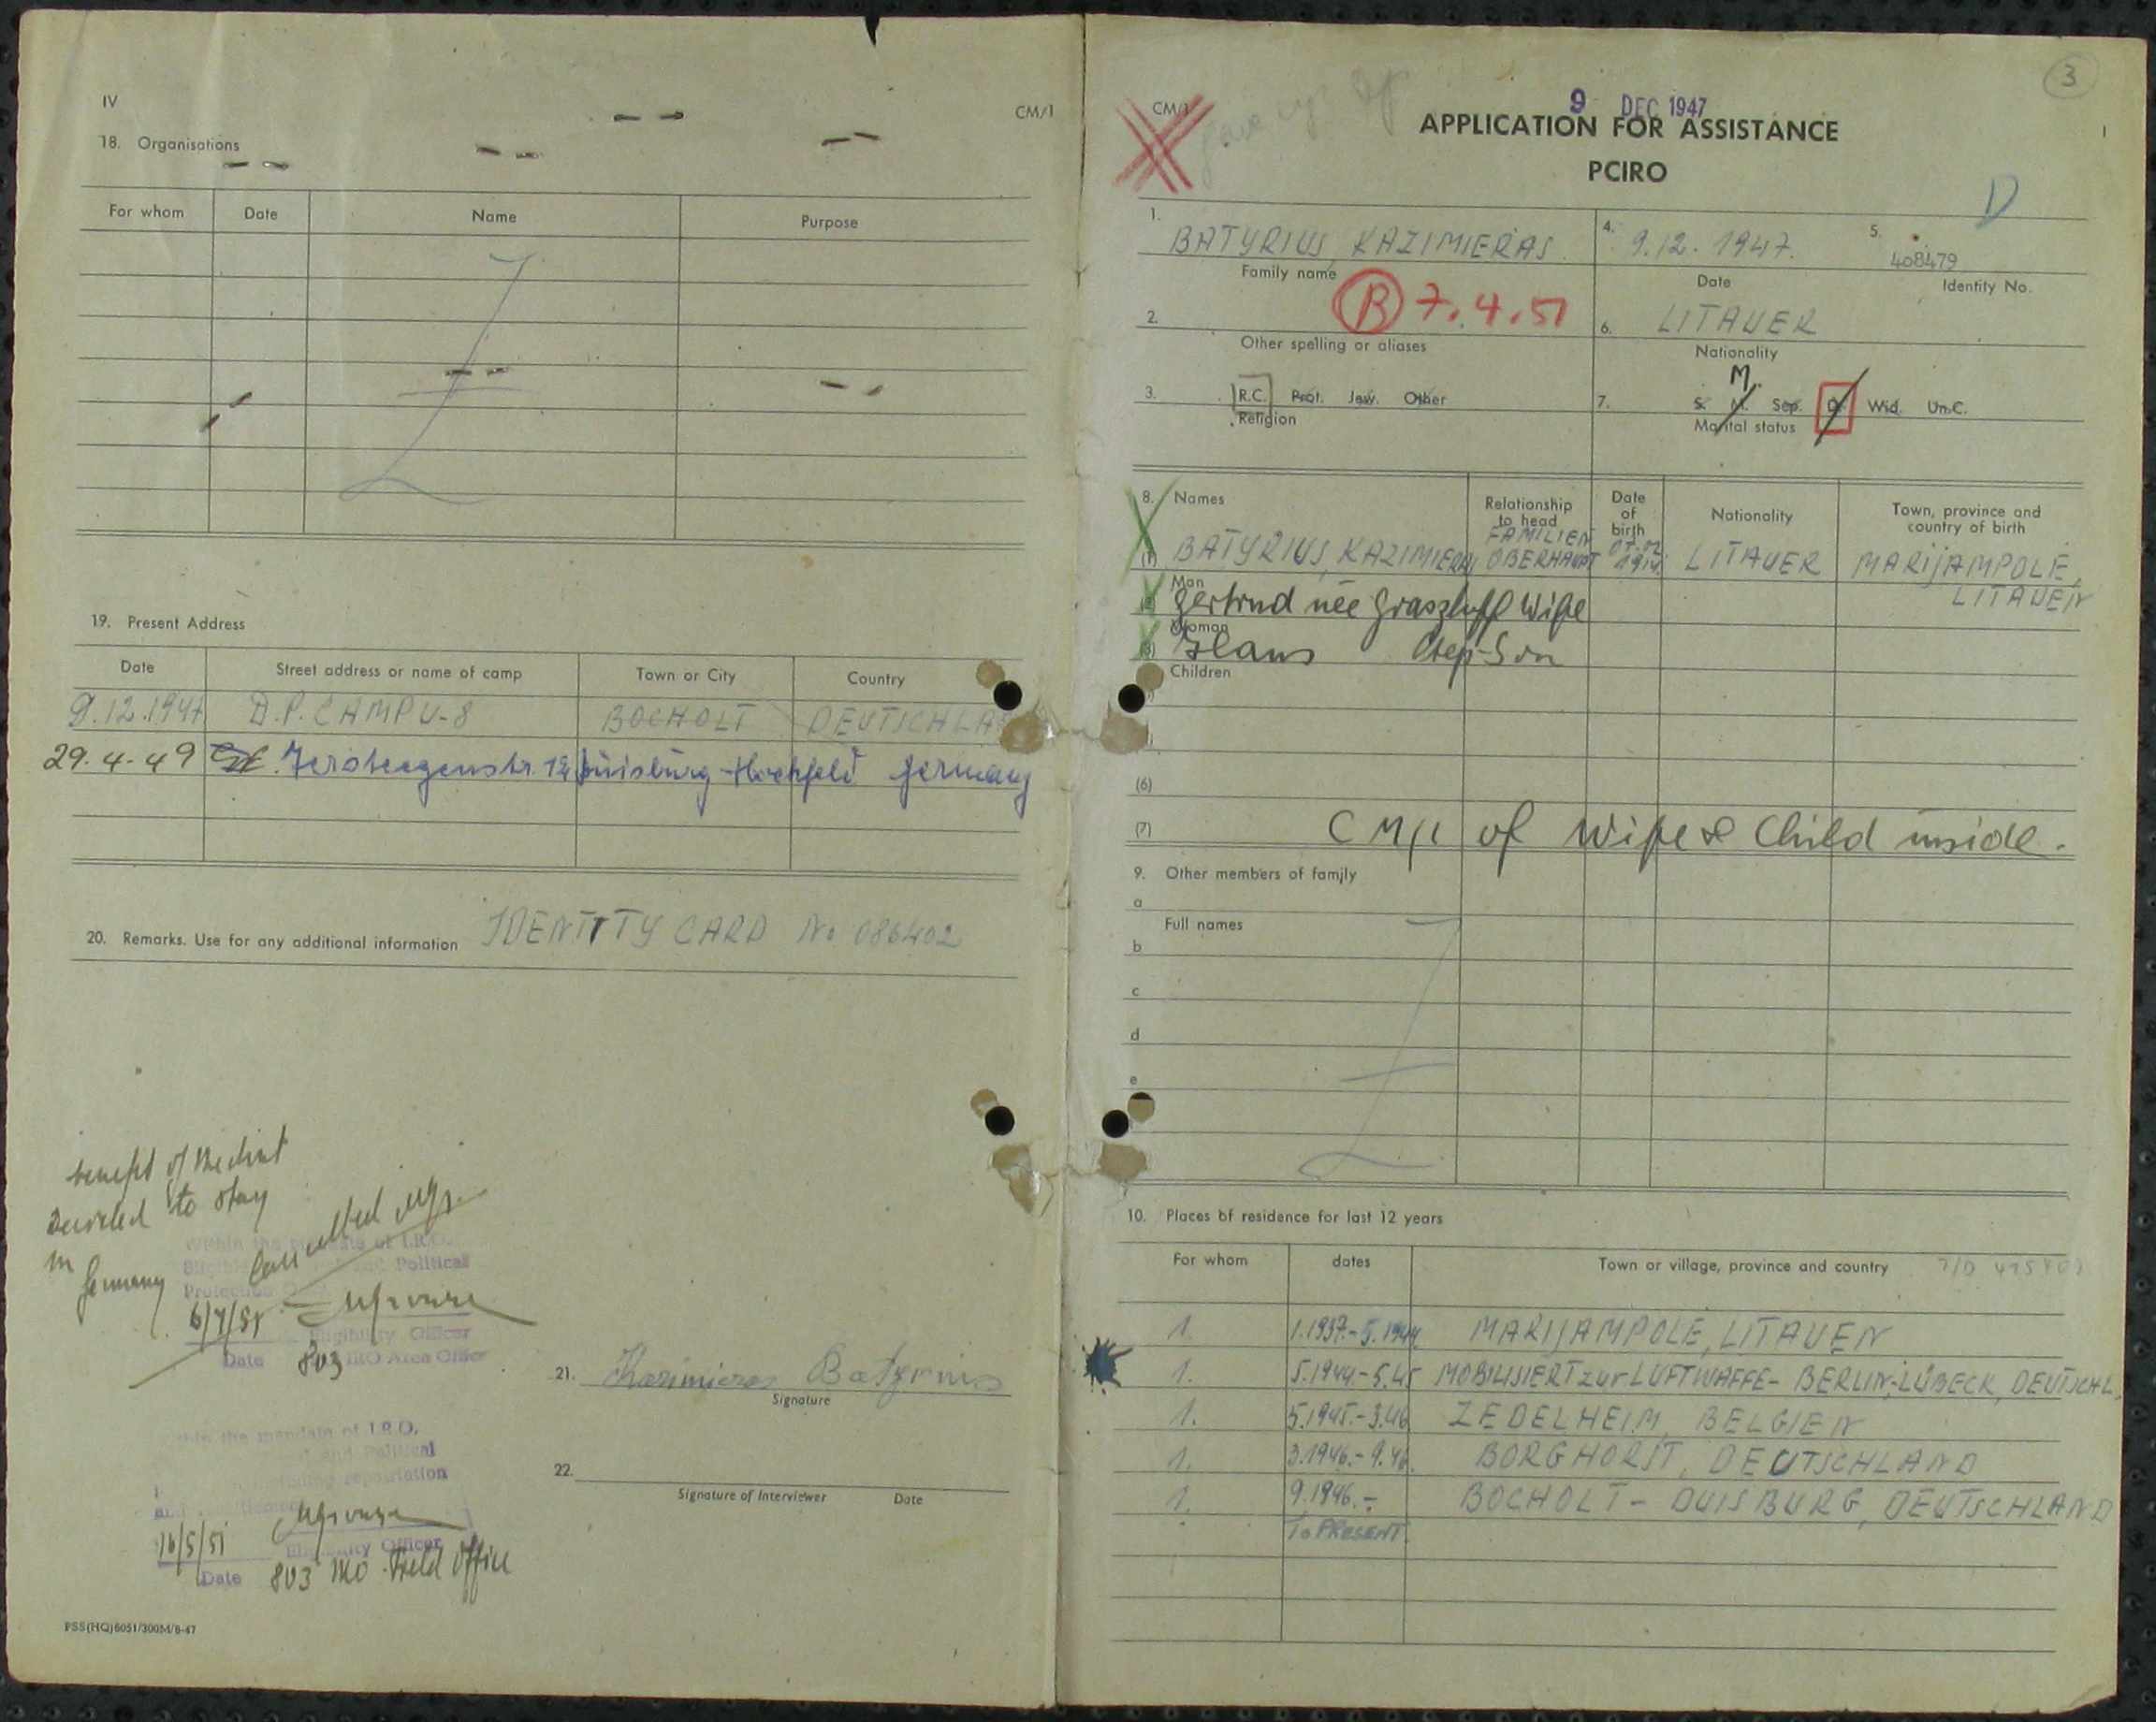 IV
CM/1
18. Organisations
For whom Date Name Purpose
19. Present Address
Date Street address or name of camp Town or City Country
9.12.1947 D.P. CAMP U-8 BOCHOLT DEUTSCHLA
29.4.49 Duisburg-Hochfeld Germany
20. Remarks. Use for any additional information IDENTITY CARD No 086402
benefit of
Decided to stay
in
Germany
Cancelled
Within the mandate of I.R.O.
Political
Protection
6/7/51
Eligibility Officer
Date 803 IRO Area Office
the mandate of I.R.O.
and Political
repatriation
16/5/51
Eligibility Officer
Date 803 IRO Field Office
21. Kazimieras Batyrius
Signature
22.
Signature of Interviewer Date
PSS(HQ)6051/300M/8-47
3
CM/1
9 DEC 1947
APPLICATION FOR ASSISTANCE
PCIRO
D
1. BATYRIUS, KAZIMIERAS
Family name
4. 9.12.1947.
Date
5. 408479
Identity No.
B 7.4.51
2.
Other spelling or aliases
6. LITAUER
Nationality
3. R.C. Prot. Jew. Other
Religion
M.
7. S. M. Sep. D. Wid. Un.C.
Marital status
8. Names Relationship to head Date of birth Nationality Town, province and country of birth
(1) BATYRIUS, KAZIMIERAS FAMILIEN OBERHAUPT LITAUER MARIJAMPOLE, LITAUEN
Man
(2) Gertrud née Wife
Woman
(3) Hans Step-Son
Children
(6)
(7) CM/1 of Wife & Child inside.
9. Other members of family
a
Full names
b
c
d
e
10. Places of residence for last 12 years
For whom dates Town or village, province and country
1. 1.1937.-5.1944. MARIJAMPOLE, LITAUEN
1. 5.1944-5.45 MOBILISIERT zur LUFTWAFFE- BERLIN-LÜBECK, DEUTSCHL.
1. 5.1945.-3.46 ZEDELHEIM, BELGIEN
1. 3.1946.-9.46. BORGHORST, DEUTSCHLAND
1. 9.1946.- BOCHOLT-DUISBURG, DEUTSCHLAND
To PRESENT.